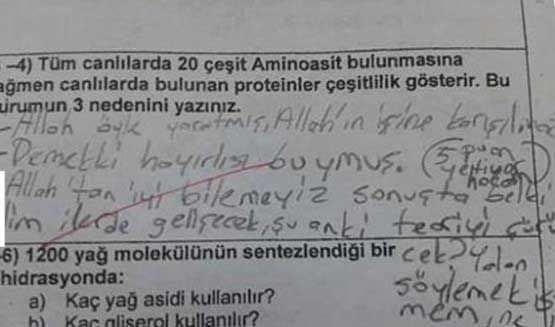 -4) Tüm canlılarda 20 çeşit Aminoasit bulunmasına
ağmen canlılarda bulunan proteinler çeşitlilik gösterir. Bu
urumun 3 nedenini yazınız.
-Allah öyle yaratmış, Allah'ın işine karışılmaz
-Demekki hayırlısı buymuş. (5 puan
yetiyor
hocam)
Allah'tan iyi bilemeyiz sonuçta belki
im ilerde gelişecek, şu anki teoriyi çürü
cek? Yalan
söylemek is
mem, ne
-6) 1200 yağ molekülünün sentezlendiği bir
hidrasyonda:
a) Kaç yağ asidi kullanılır?
b) Kaç gliserol kullanılır?